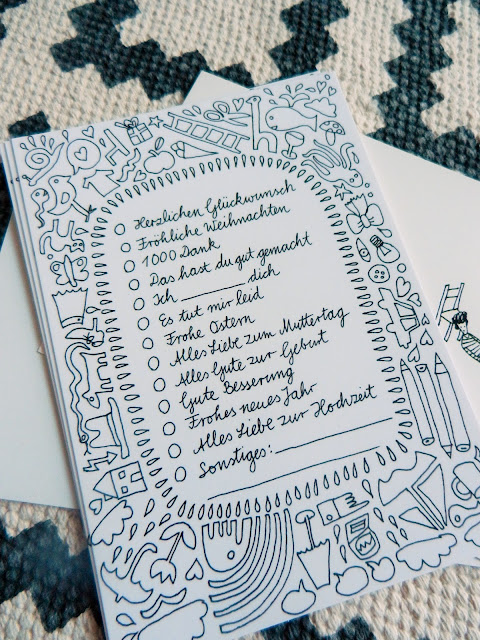 Herzlichen Glückwunsch
Fröhliche Weihnachten
1000 Dank
Das hast du gut gemacht
Ich ________ dich
Es tut mir leid
Frohe Ostern
Alles Liebe zum Muttertag
Alles Gute zur Geburt
Gute Besserung
Frohes neues Jahr
Alles Liebe zur Hochzeit
Sonstiges: ______________